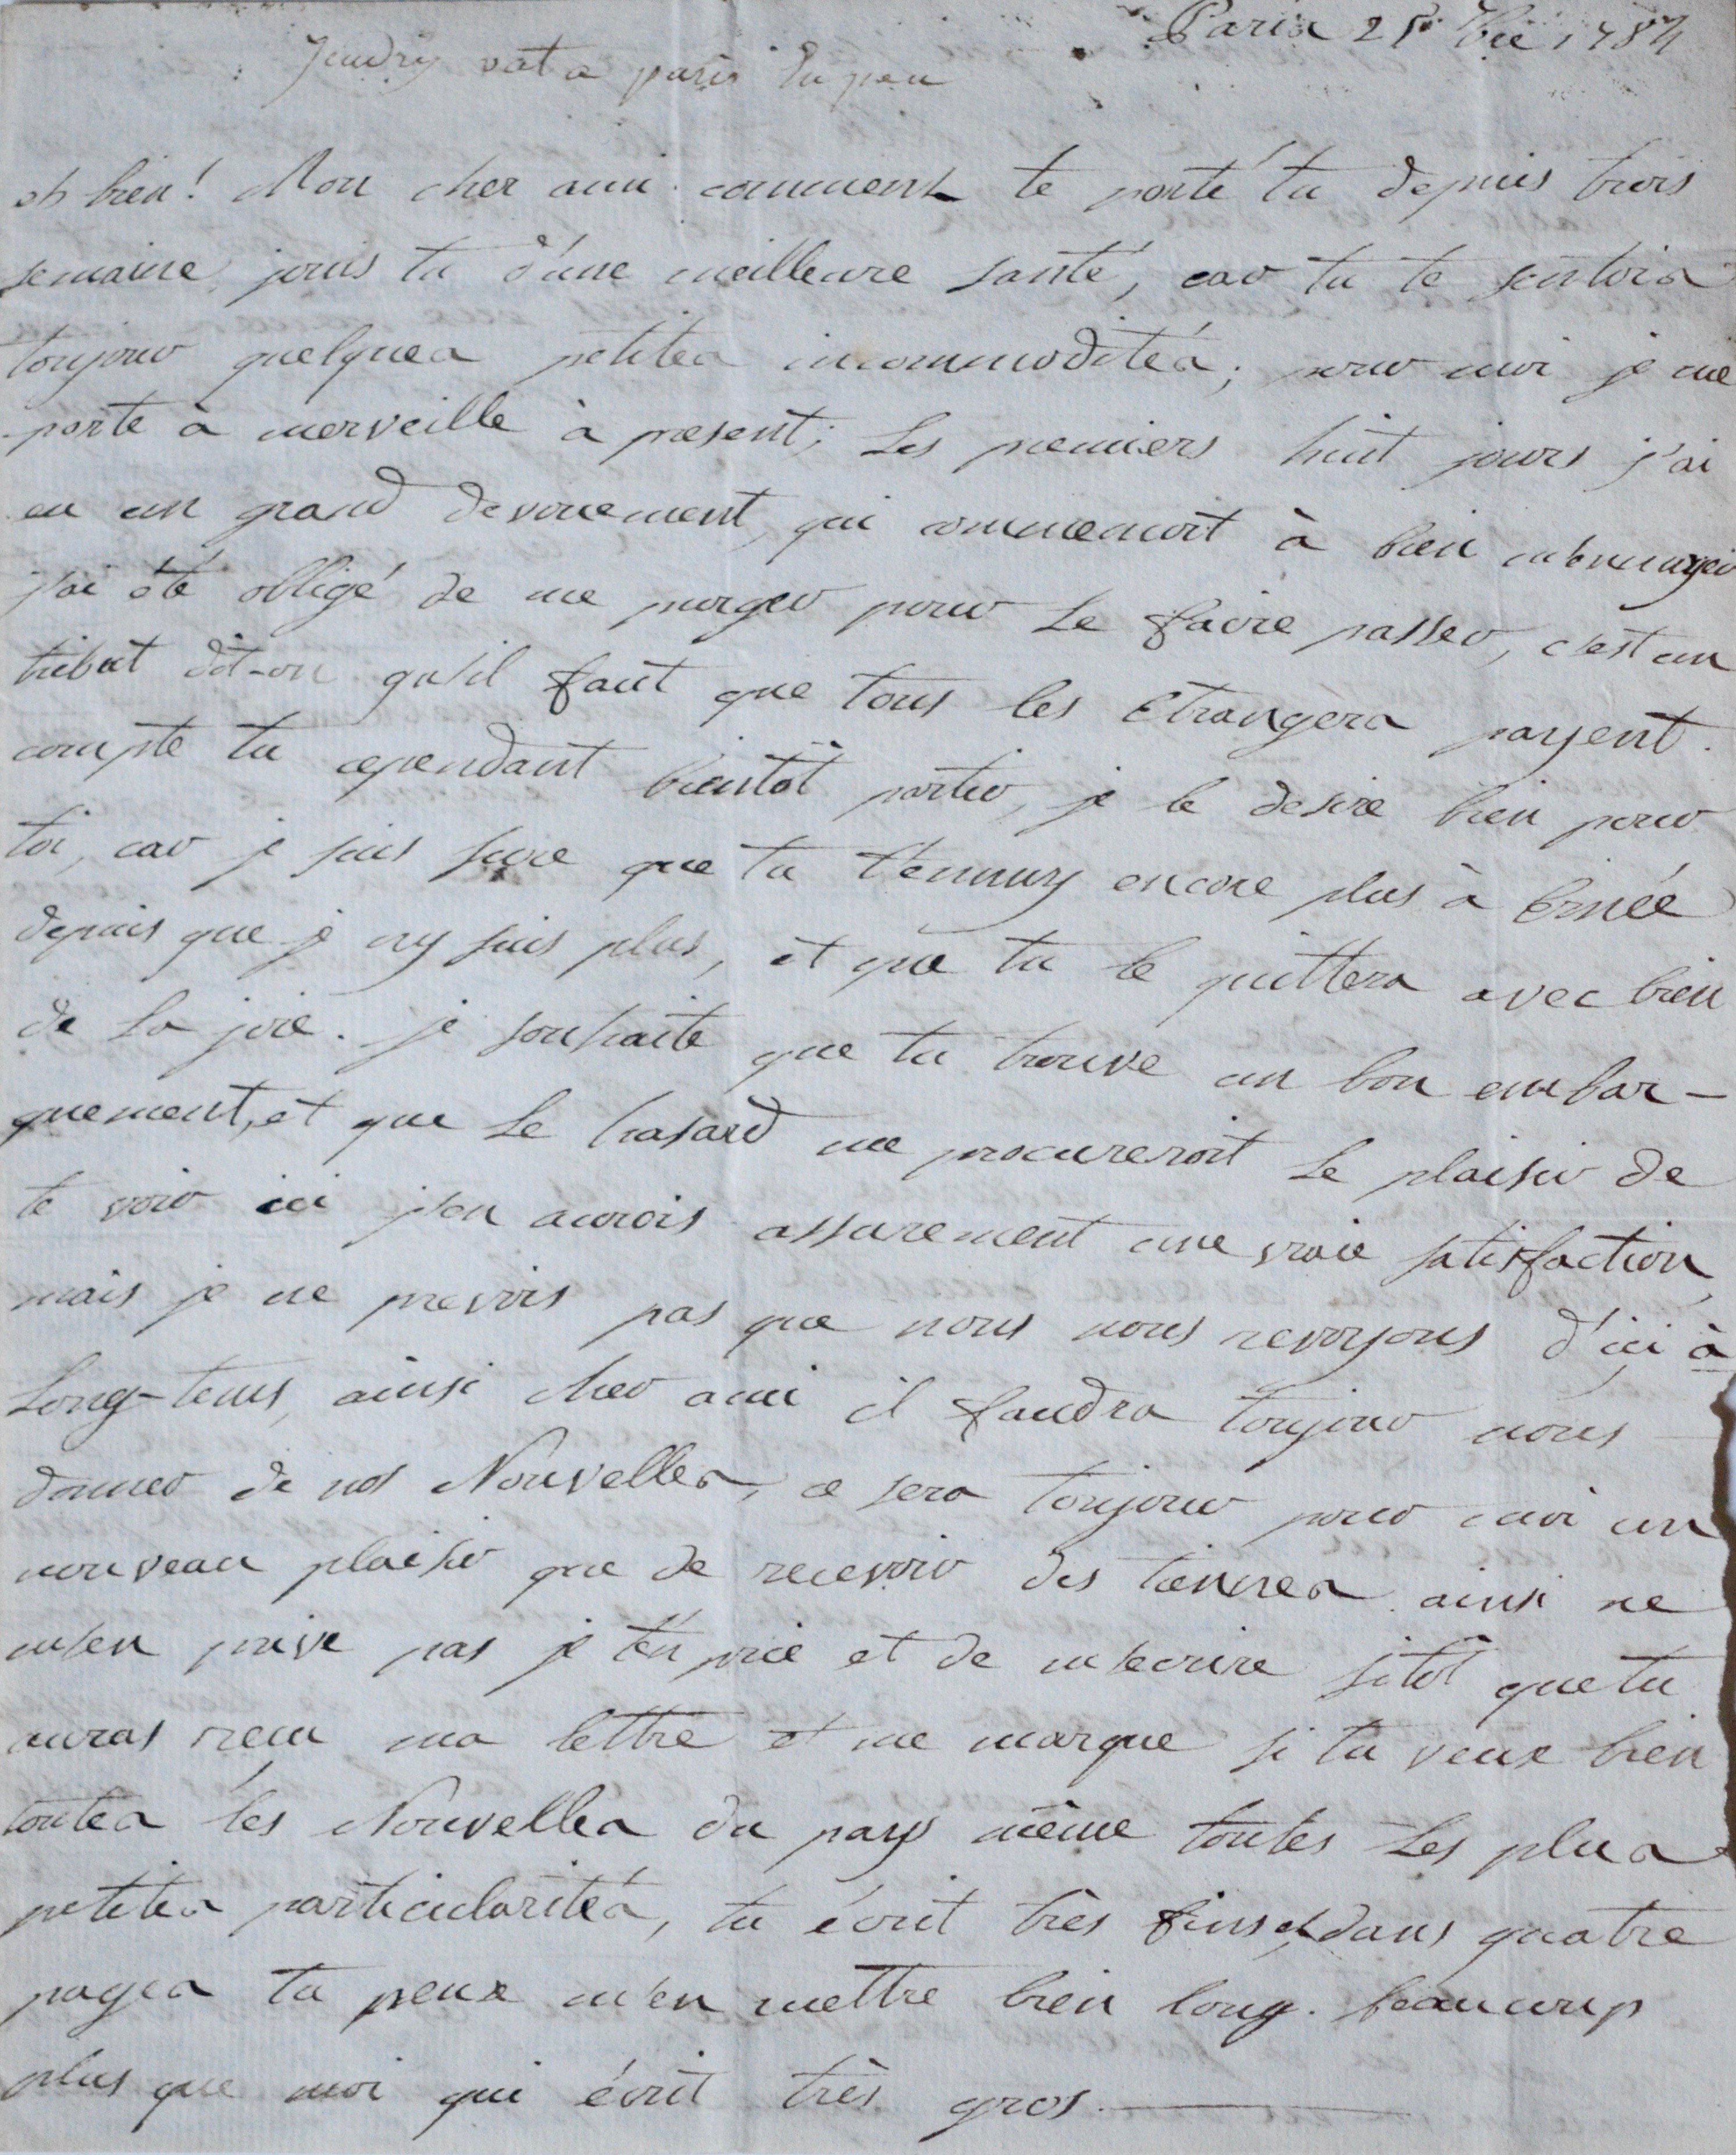 Paris 25 7bre 1784
vat a paris du peu
eh bien! Mon cher ami comment te porte tu depuis trois
semaine, jouis tu d'une meilleure santé, car tu te sentois
toujour quelques petites incommodités; pour moi je me
porte à merveille à present; Les premiers huit jours j'ai
eu un grand devoiement, qui commencoit à bien m'ennuyer
j'ai été obligé de me purger pour Le faire passer, c'est un
tribut dit-on qu'il faut que tous les etrangers payent.
compte tu cependant bientôt partir, je le desire bien pour
toi, car je suis sure que tu t'ennuy encore plus à Ernée
depuis que je ny suis plus, et que tu le quittera avec bien
de La joie. je souhaite que tu trouve un bon embar-
quement, et que Le hasard me procureroit Le plaisir de
te voir ici j'en aurois assurement une vraie satisfaction,
mais je ne prevois pas que nous nous revoyons d'ici à
Long-tems, ainsi cher ami il faudra toujour nous
donner de nos Nouvelles, ce sera toujour pour moi un
nouveau plaisir que de recevoir des tiennes ainsi ne
m'en prive pas je t'en prie et de m'ecrire sitôt que tu
auras reçu ma lettre et me marque si tu veux bien
toutes les Nouvelles du pays même toutes Les plus
petites particularités, tu écrit très fins et dans quatre
pages tu peux m'en mettre bien long. beaucoup
plus que moi qui écrit très gros.